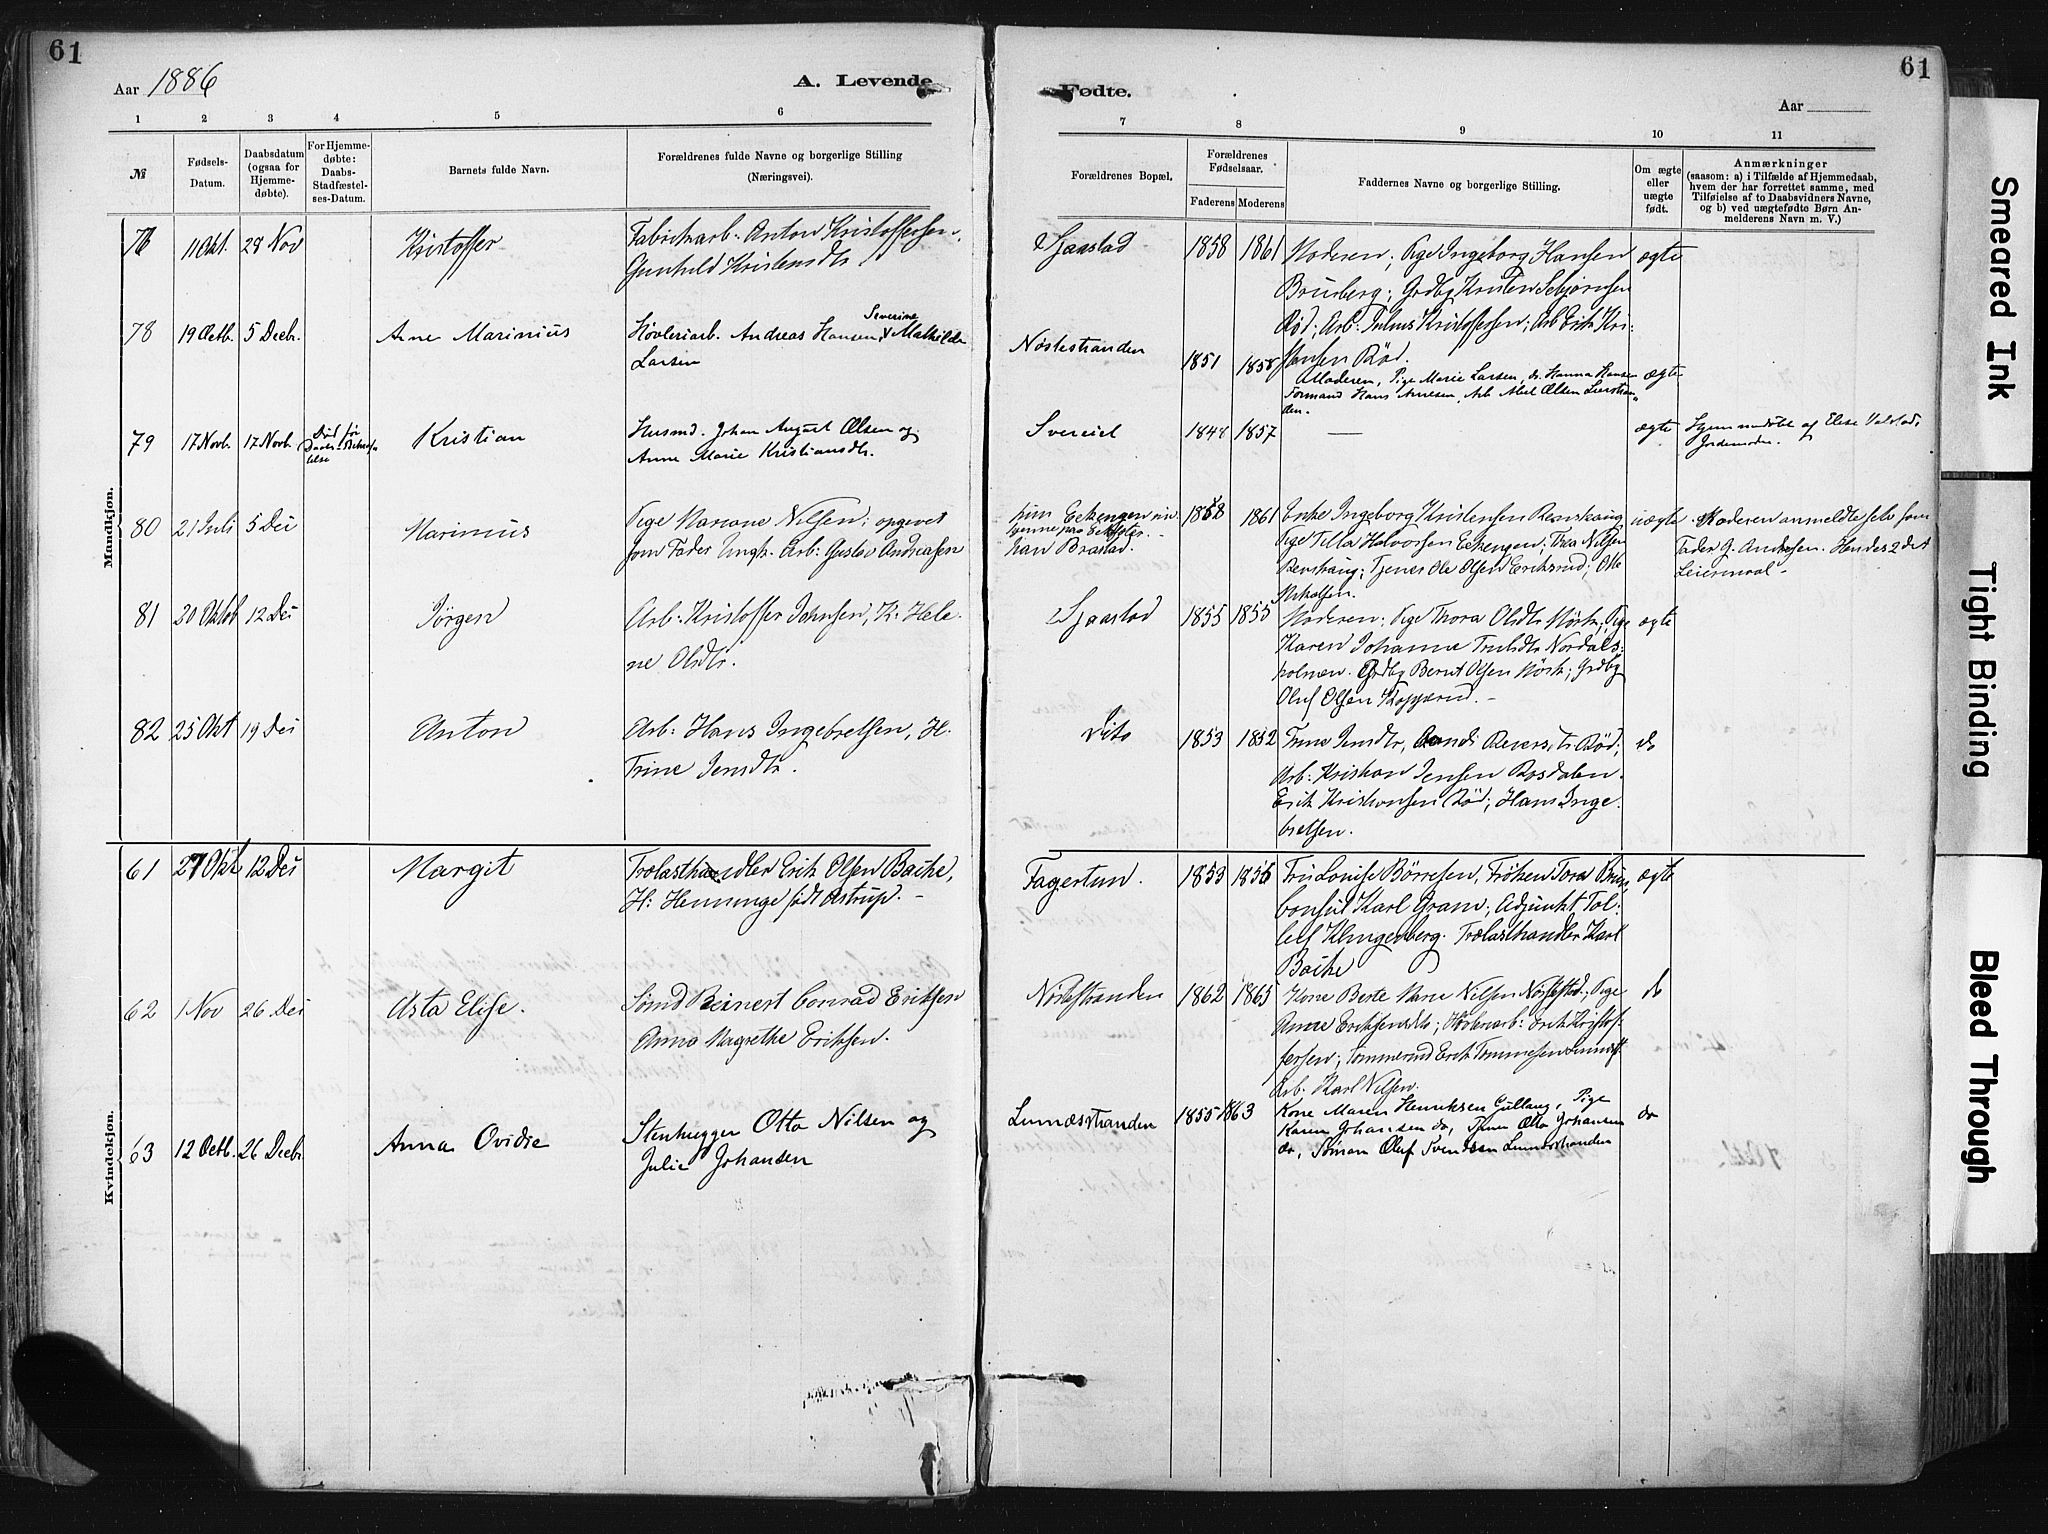 61
61
Aar 1886
A. Levende
Fødte.
Aar
1 2 3 4 5 6
7 8 9 10 11
№
Fødsels-
Datum.
Daabsdatum
(ogsaa for
Hjemme-
døbte).
For Hjemme-
døbte:
Daabs-
Stadfæstel-
ses-Datum.
Barnets fulde Navn.
Forældrenes fulde Navne og borgerlige Stilling
(Næringsvei).
Forældrenes Bopæl.
Forældrenes
Fødselsaar.
Faderens Moderens
Faddernes Navne og borgerlige Stilling.
Om ægte
eller
uægte
født.
Anmærkninger
(saasom: a) i Tilfælde af Hjemmedaab,
hvem der har forrettet samme, med
Tilføielse af to Daabsvidners Navne,
og b) ved uægtefødte Børn An-
melderens Navn m. V.)
Mandkjøn.
76 11 Okt. 28 Nov Kristoffer
Fabrikarb. Anton Kristoffersen,
Gunhild Kristensdtr.
Sjaastad 1858 1861
Moderen; Pige Ingeborg Hansen
Bruberg; Grdbr Kristen
Rød; Arb. Julius Kristoffersen; Arb Erik Kri-
stensen Rød.
ægte
78 19 Octb. 5 Decbr. Arne Marinius
Høvleriarb. Andreas Hansen, Severine Mathilde
Larsen
Nøstestranden 1851 1858
Moderen, Pige Marie Larsen, do Hanna Hansen
Formand Hans Arnesen, Arb Abel Olsen Lierstran-
den.
ægte
79 17 Novb. 17 Novb. Død før
Kristian
Husmd. Johan August Olsen og
Anne Marie Kristiansdtr.
1857
—
ægte
Hjemmedøbt af Else
Jordemoder.
80 21 Juli 5 Dec Marinius
Pige Mariane Nilsen; opgivet
som Fader Ungk. Arb: Gustav Andreasen
han Brastad.
1858 1861
Enke Ingeborg Kristensen
Pige Tilla Halvorsen Eekengen; Thea Nilsen
Tjener Ole Olsen Eriksrud; Ole
uægte
Moderen anmeldte selv som
Fader G. Andresen. Hendes 2det
Leiermaal -
81 20 Oktob 12 Dec Jørgen
Arb: Kristoffer Johnsen, K: Hele-
ne Olsdtr.
Sjaastad 1855 1855
Moderen; Pige Thora Olsdtr Mørk; Pige
Karen Johanna Trulsdtr Nordals-
holmen. Grdbr Bernt Olsen Mørk; Grdbr
Oluf Olsen Kopperud. -
ægte
82 25 Okt 19 Dec Anton
Arb: Hans Ingebretsen, H:
Trine Jensdtr.
Dito 1853 1852
Trine Jensdtr,
Arb: Kristian Jensen Rosdalen.
Erik Kristiansen Rød; Hans Inge-
bretsen.
do
Kvindekjøn.
61 27 Okt 12 Dec Margit
Trælasthandler Erik Olsen Bache,
H: Henninge født Astrup. -
Fagertun. 1853 1856
Fru Louise Børresen, Frøken Tora
Consul Karl Gram; Adjunkt Tol-
lef Klingenberg. Trælasthandler Karl
Bache
ægte
62 1 Nov 26 Dec Asta Elise.
Sømd Reinert Conrad Eriksen
Anna Margrethe Eriksen.
Nøstestranden 1862 1865
Kone Berte Marie Nilsen Nøstestrd.; Pige
Anne Eriksen do; Høvleriarb: Erik Kristof-
fersen; Tømmermd Erik Tommesen
Arb. Karl Nilsen.
do
63 12 Octb. 26 Decbr. Anna Ovidie
Stenhugger Otto Nilsen og
Julie Johansen
Lernæsstranden 1855 1863
Kone Maren Henriksen Gullaug, Pige
Karen Johansen do, Tjener Otto Johansen
do, Søman Oluf Svendsen Lernæsstranden
do
Smeared Ink
Tight Binding
Bleed Through